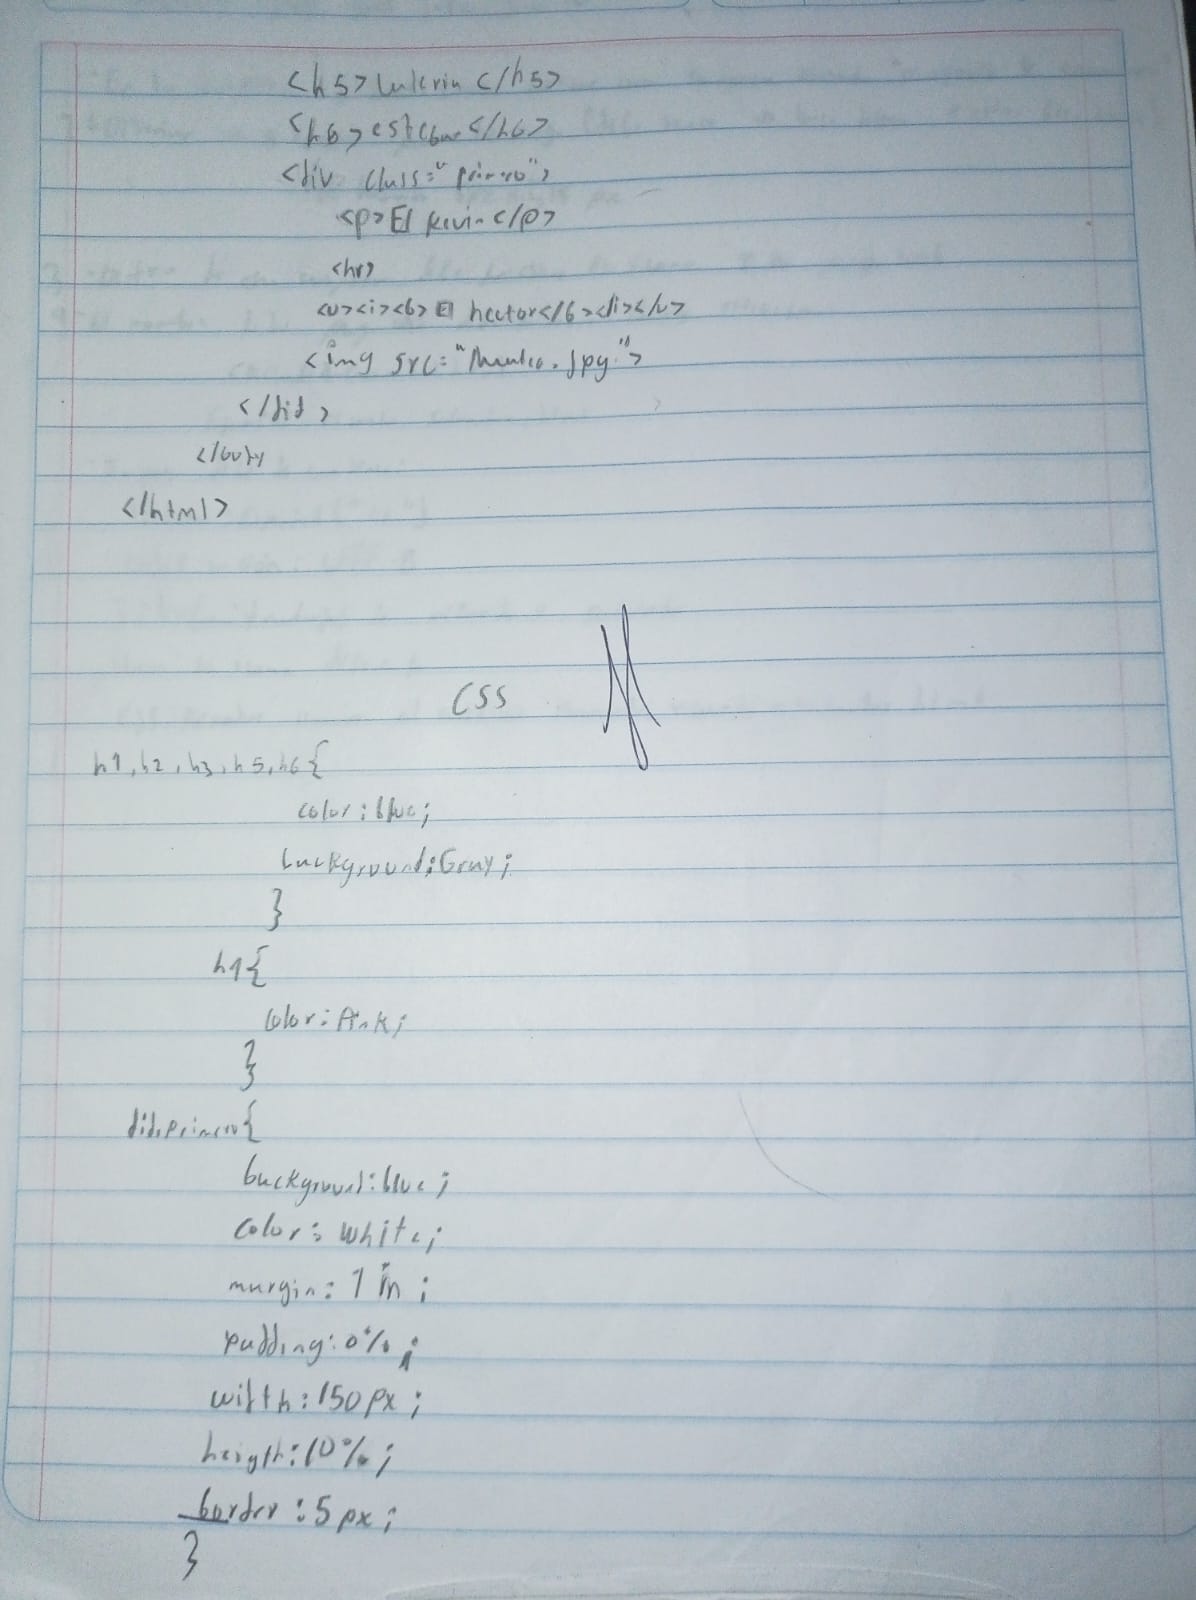 <h5> </h5>
<h6> </h6>
<div class="primero">
<p>El kevin</p>
<hr>
<u><i><b>El hector</b></i></u>
<img src=" .jpg">
</did>
</body
</html>
CSS
h1,h2,h3,h5,h6{
color:blue;
background:Gray;
}
h1{
color:Pink;
}
did.primero{
background:blue;
color: white;
margin: 1in;
padding:0%;
width:150px;
heigth:10%;
border:5px;
}